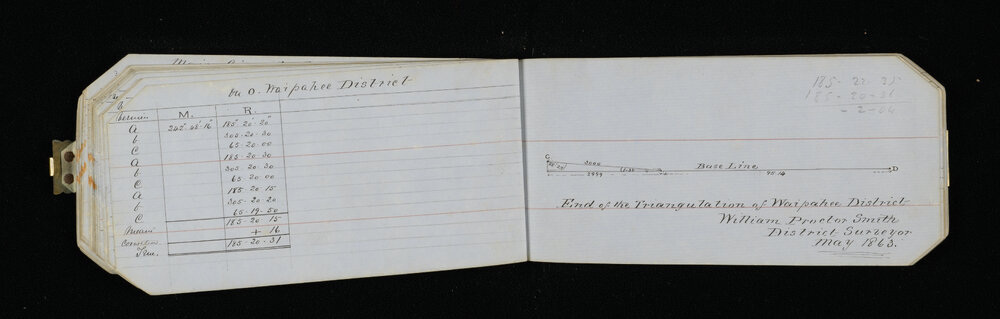 in O. Waipahee District
Vernier M. R.
A 242°.42'.16" 185°.20'.20"
b 305.20.30
C 65.20.00
A 185.20.30
b 305.20.30
C 65.20.00
A 185.20.15
b 305.20.20
C 65.19.50
Mean 185.20.15
Correction + 16
True. 185.20.31
185-22-35
185-20-31
-2-04
C 3000 Base Line D
2959 95.14
End of the Triangulation of Waipahee District
William Proctor Smith
District Surveyor
May 1863.